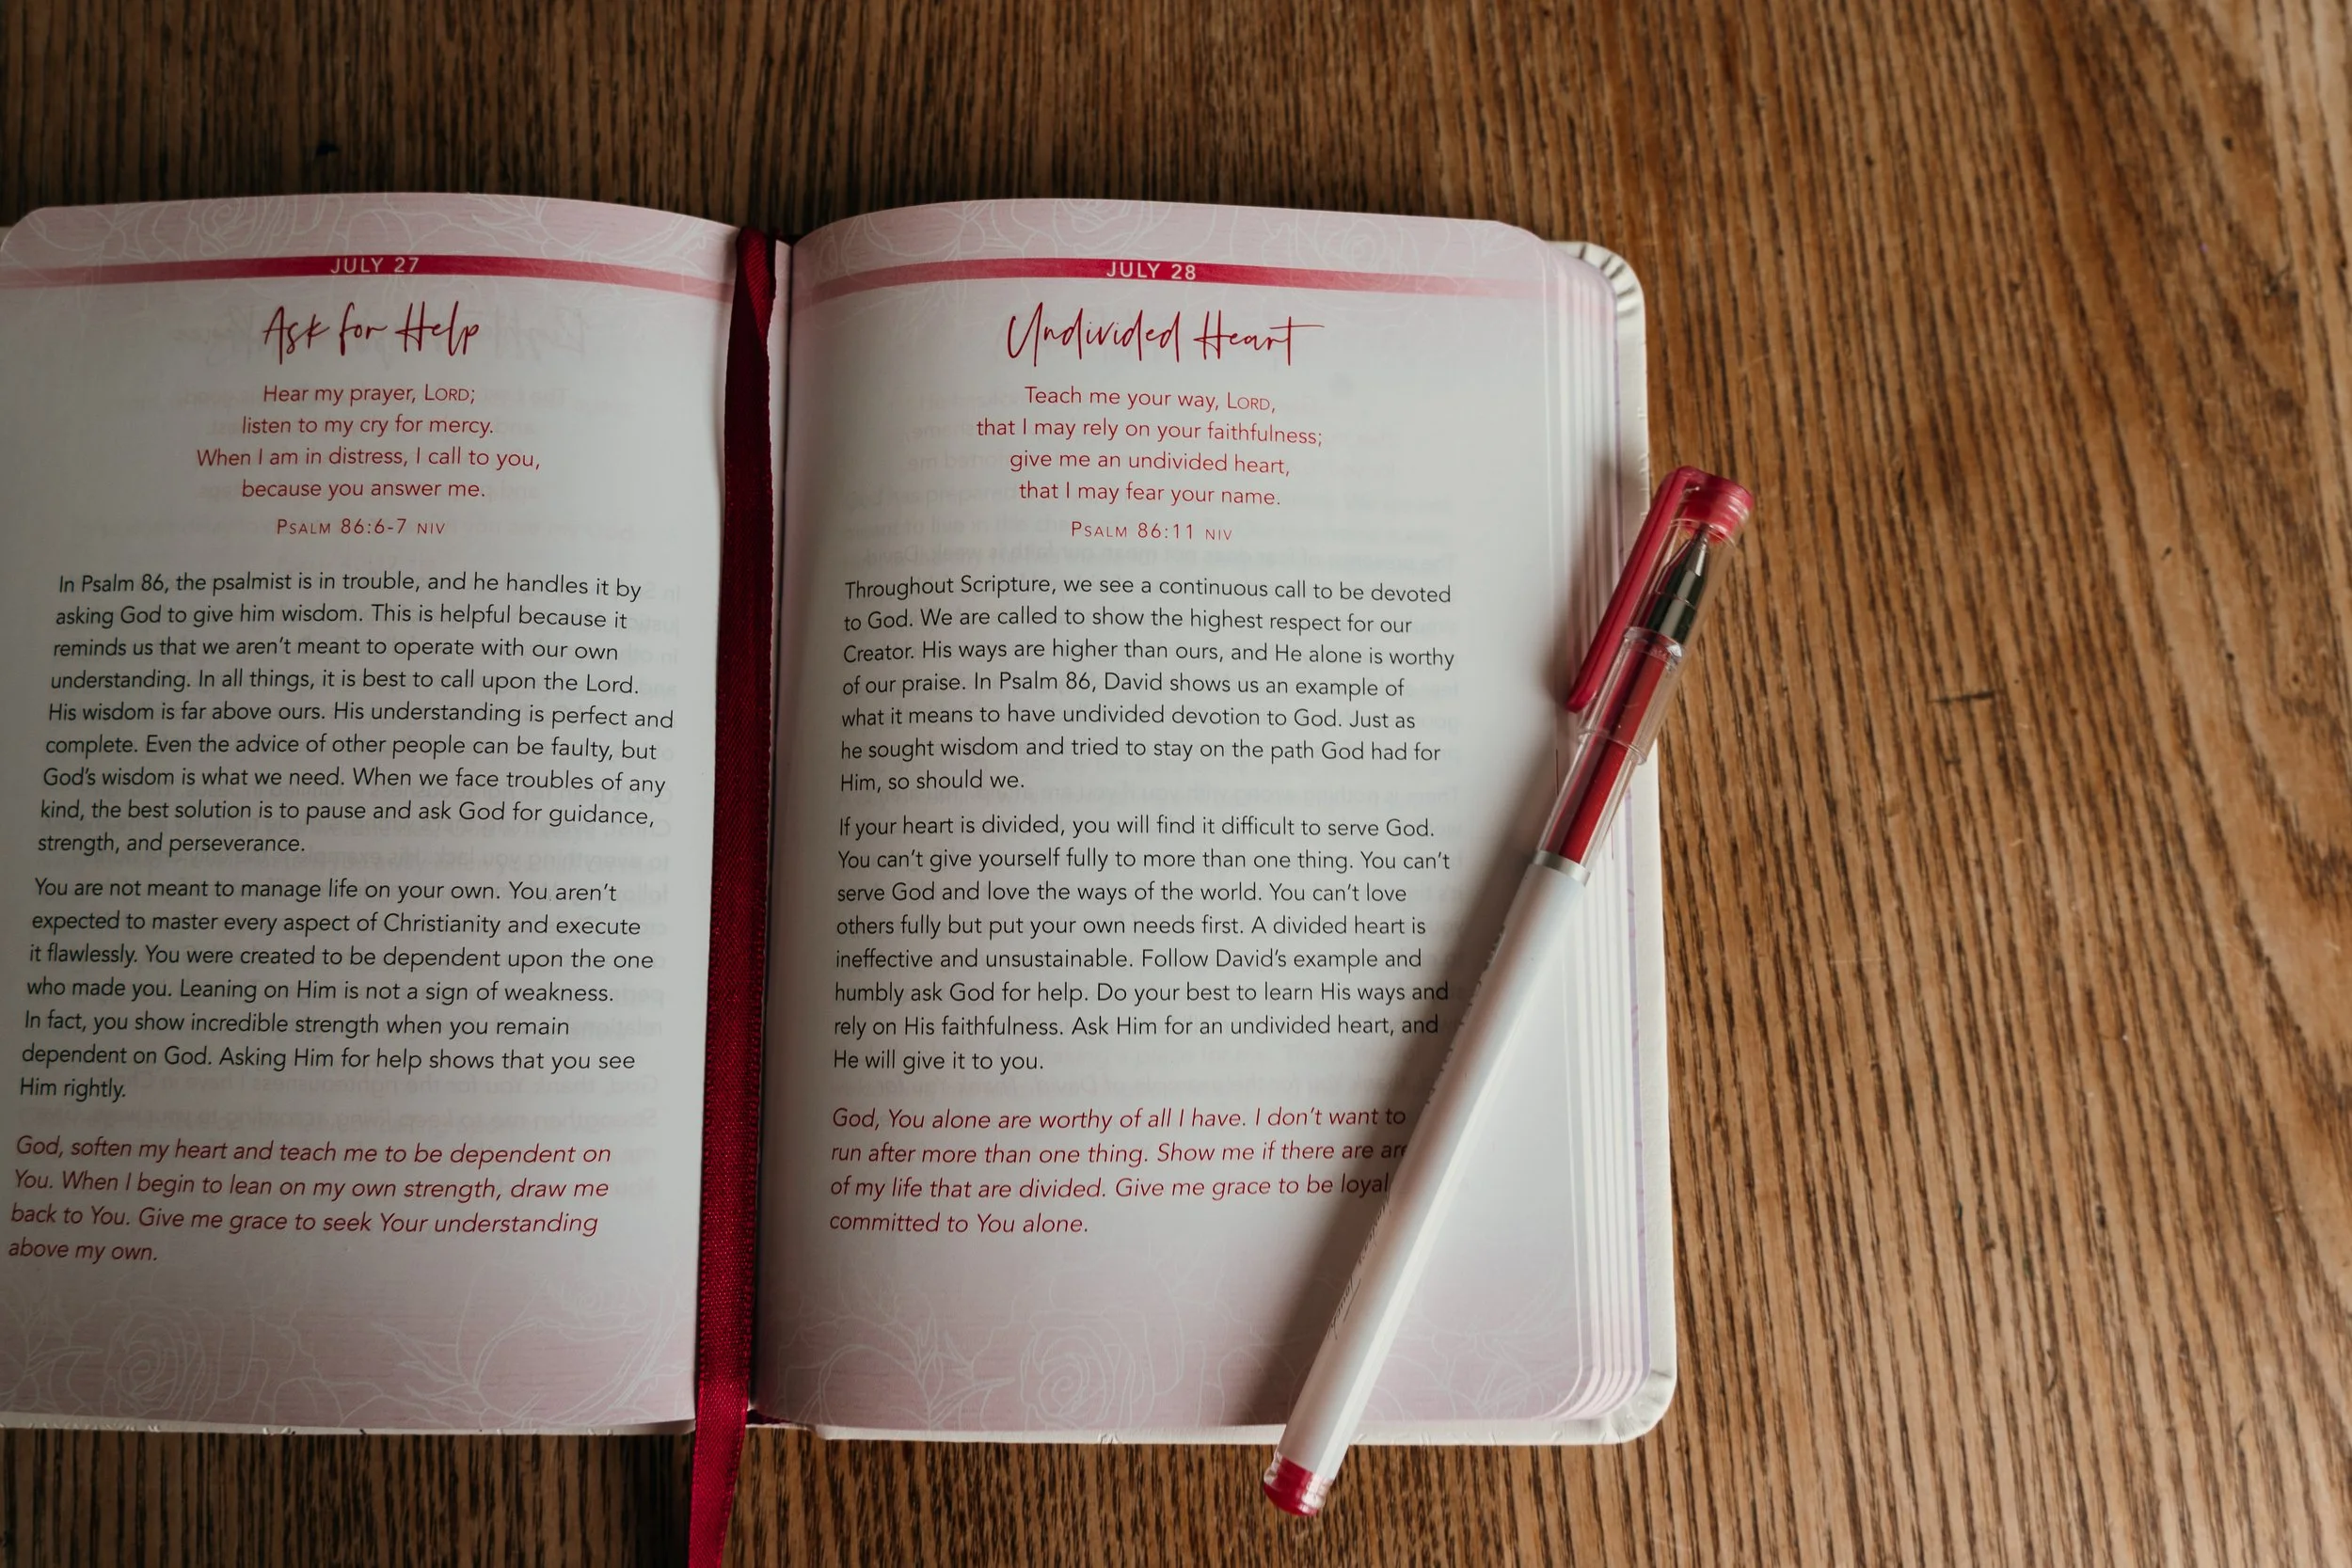 JULY 27
Ask for Help
Hear my prayer, LORD;
listen to my cry for mercy.
When I am in distress, I call to you,
because you answer me.
PSALM 86:6-7 NIV
In Psalm 86, the psalmist is in trouble, and he handles it by
asking God to give him wisdom. This is helpful because it
reminds us that we aren't meant to operate with our own
understanding. In all things, it is best to call upon the Lord.
His wisdom is far above ours. His understanding is perfect and
complete. Even the advice of other people can be faulty, but
God's wisdom is what we need. When we face troubles of any
kind, the best solution is to pause and ask God for guidance,
strength, and perseverance.
You are not meant to manage life on your own. You aren't
expected to master every aspect of Christianity and execute
it flawlessly. You were created to be dependent upon the one
who made you. Leaning on Him is not a sign of weakness.
In fact, you show incredible strength when you remain
dependent on God. Asking Him for help shows that you see
Him rightly.
God, soften my heart and teach me to be dependent on
You. When I begin to lean on my own strength, draw me
back to You. Give me grace to seek Your understanding
above my own.
JULY 28
Undivided Heart
Teach me your way, LORD,
that I may rely on your faithfulness;
give me an undivided heart,
that I may fear your name.
PSALM 86:11 NIV
Throughout Scripture, we see a continuous call to be devoted
to God. We are called to show the highest respect for our
Creator. His ways are higher than ours, and He alone is worthy
of our praise. In Psalm 86, David shows us an example of
what it means to have undivided devotion to God. Just as
he sought wisdom and tried to stay on the path God had for
Him, so should we.
If your heart is divided, you will find it difficult to serve God.
You can't give yourself fully to more than one thing. You can't
serve God and love the ways of the world. You can't love
others fully but put your own needs first. A divided heart is
ineffective and unsustainable. Follow David's example and
humbly ask God for help. Do your best to learn His ways and
rely on His faithfulness. Ask Him for an undivided heart, and
He will give it to you.
God, You alone are worthy of all I have. I don't want to
run after more than one thing. Show me if there are
of my life that are divided. Give me grace to be loyal
committed to You alone.